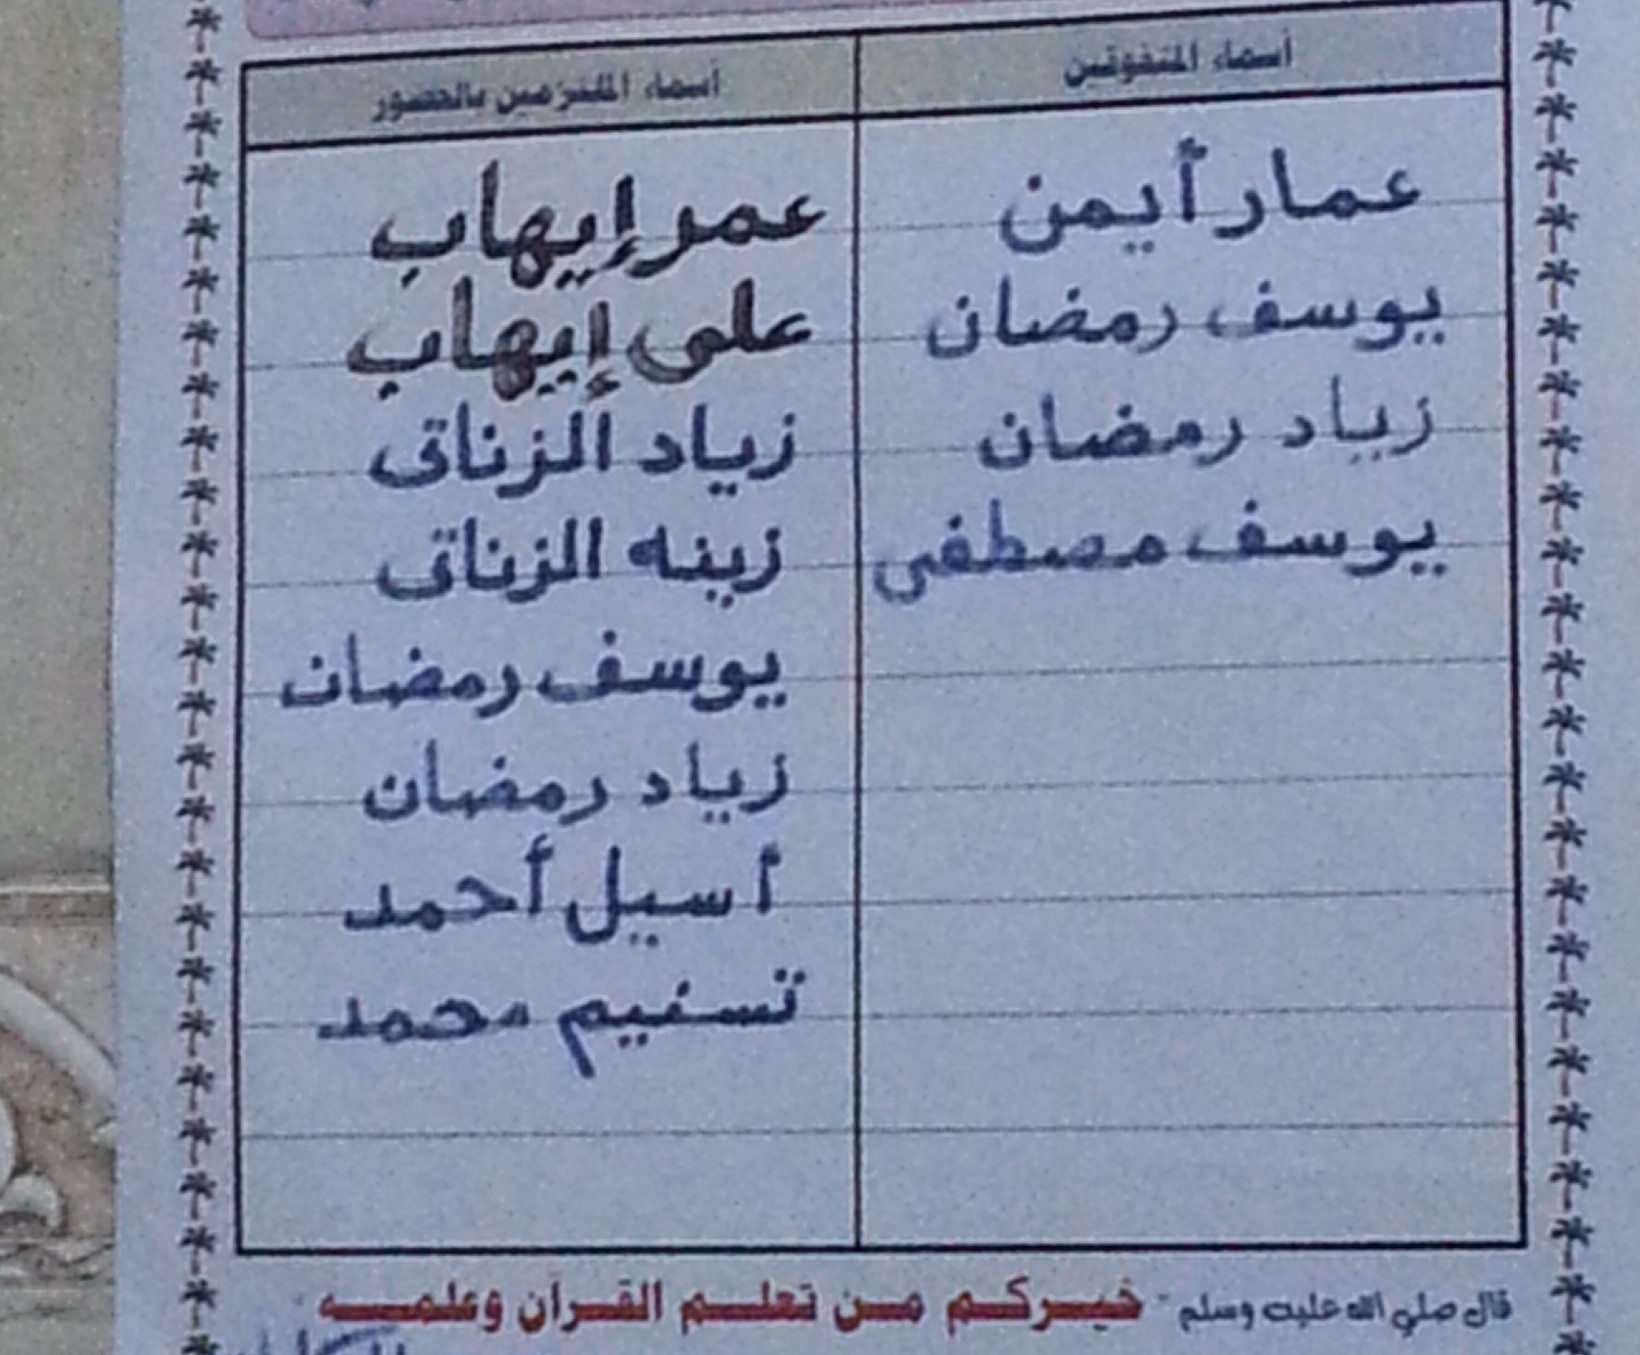 أسماء المتفوقين
أسماء الملتزمين بالحضور
عمار أيمن
يوسف رمضان
زياد رمضان
يوسف مصطفى
عمر إيهاب
على إيهاب
زياد الزناتى
زينه الزناتى
يوسف رمضان
زياد رمضان
أسيل أحمد
تسنيم محمد
قال صلي الله عليه وسلم " خيركم من تعلم القرآن وعلمه